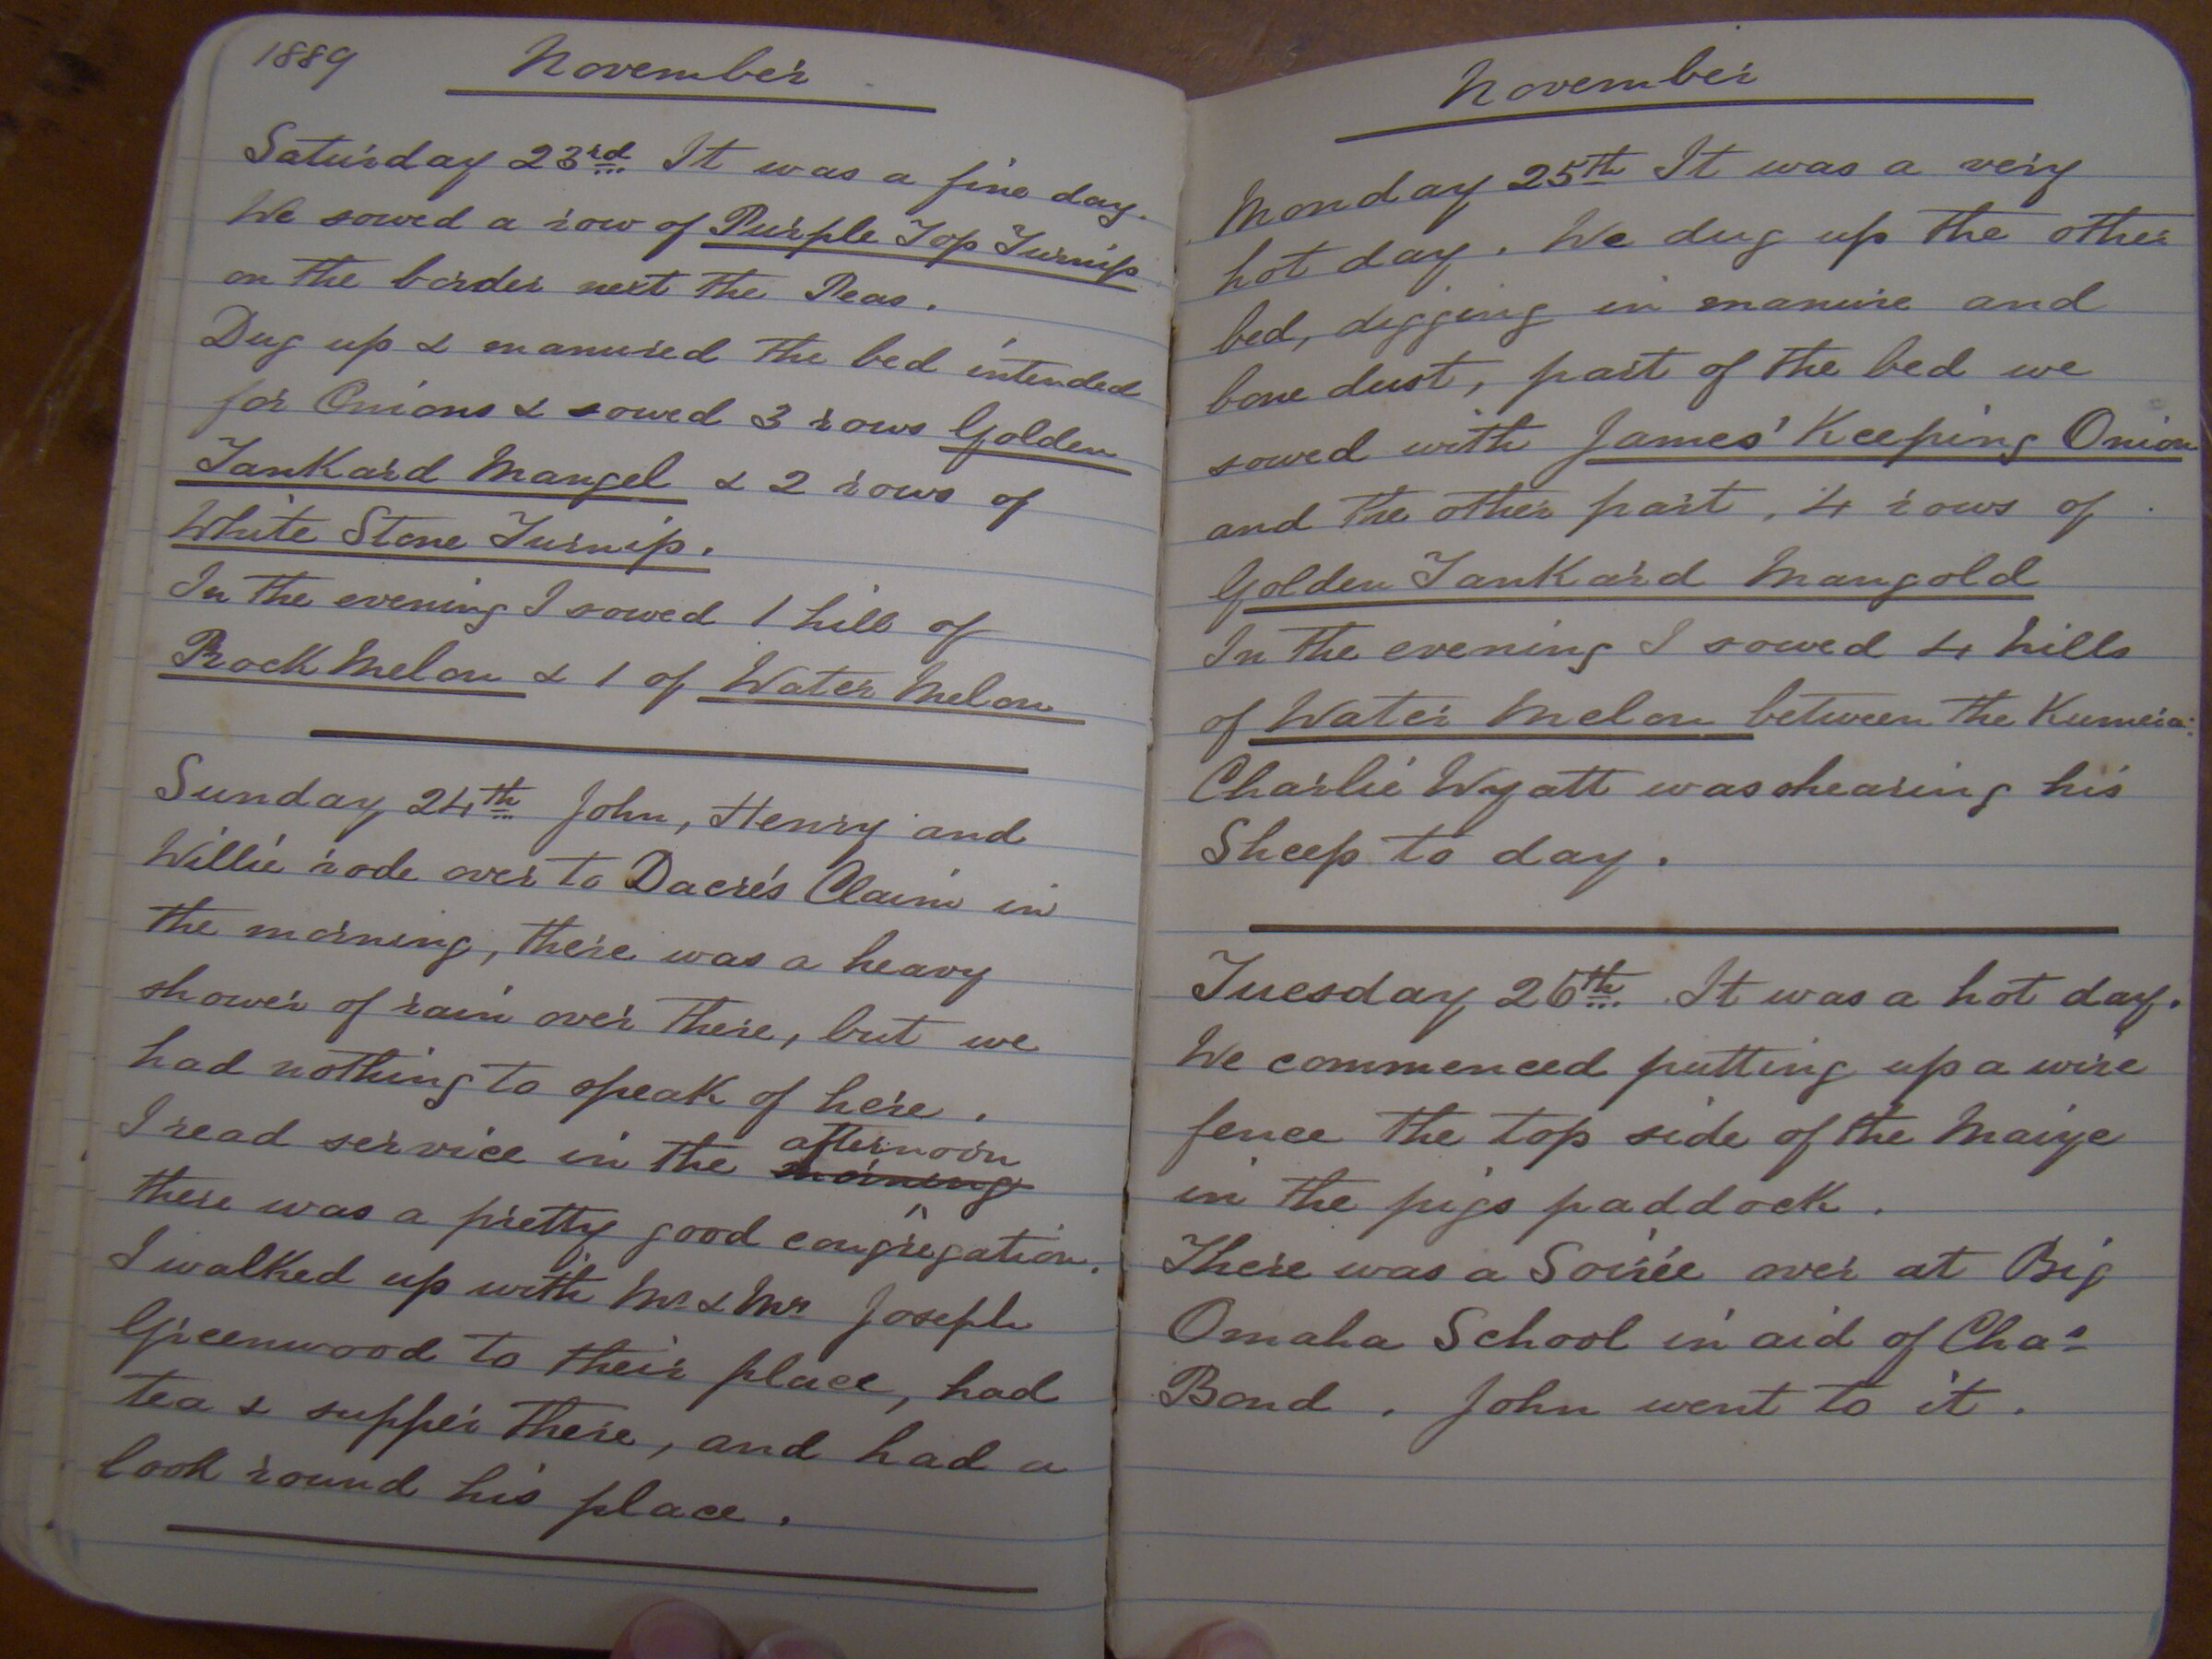 1889 November
Saturday 23rd It was a fine day.
We sowed a row of Purple Top Turnip
on the border next the Peas.
Dug up & manured the bed intended
for Onions & sowed 3 rows Golden
Tankard Mangel & 2 rows of
White Stone Turnip.
In the evening I sowed 1 hill of
Rock Melon & 1 of Water Melon
Sunday 24th John, Henry and
Willie rode over to Dacre's Claim in
the morning, there was a heavy
shower of rain over there, but we
had nothing to speak of here.
afternoon
I read service in the morning
there was a pretty good congregation.
I walked up with Mr & Mrs Joseph
Greenwood to their place, had
tea & supper there, and had a
look round his place.
November
Monday 25th It was a very
hot day. We dug up the other
bed, digging in manure and
bone dust, part of the bed we
sowed with James' Keeping Onion
and the other part, 4 rows of
Golden Tankard Mangold
In the evening I sowed 4 hills
of Water Melon between the Kumera:
Charlie Wyatt was shearing his
Sheep to day.
Tuesday 26th. It was a hot day.
We commenced putting up a wire
fence the top side of the Maize
in the pigs paddock.
There was a Soirée over at Big
Omaha School in aid of Chas
Bond. John went to it.